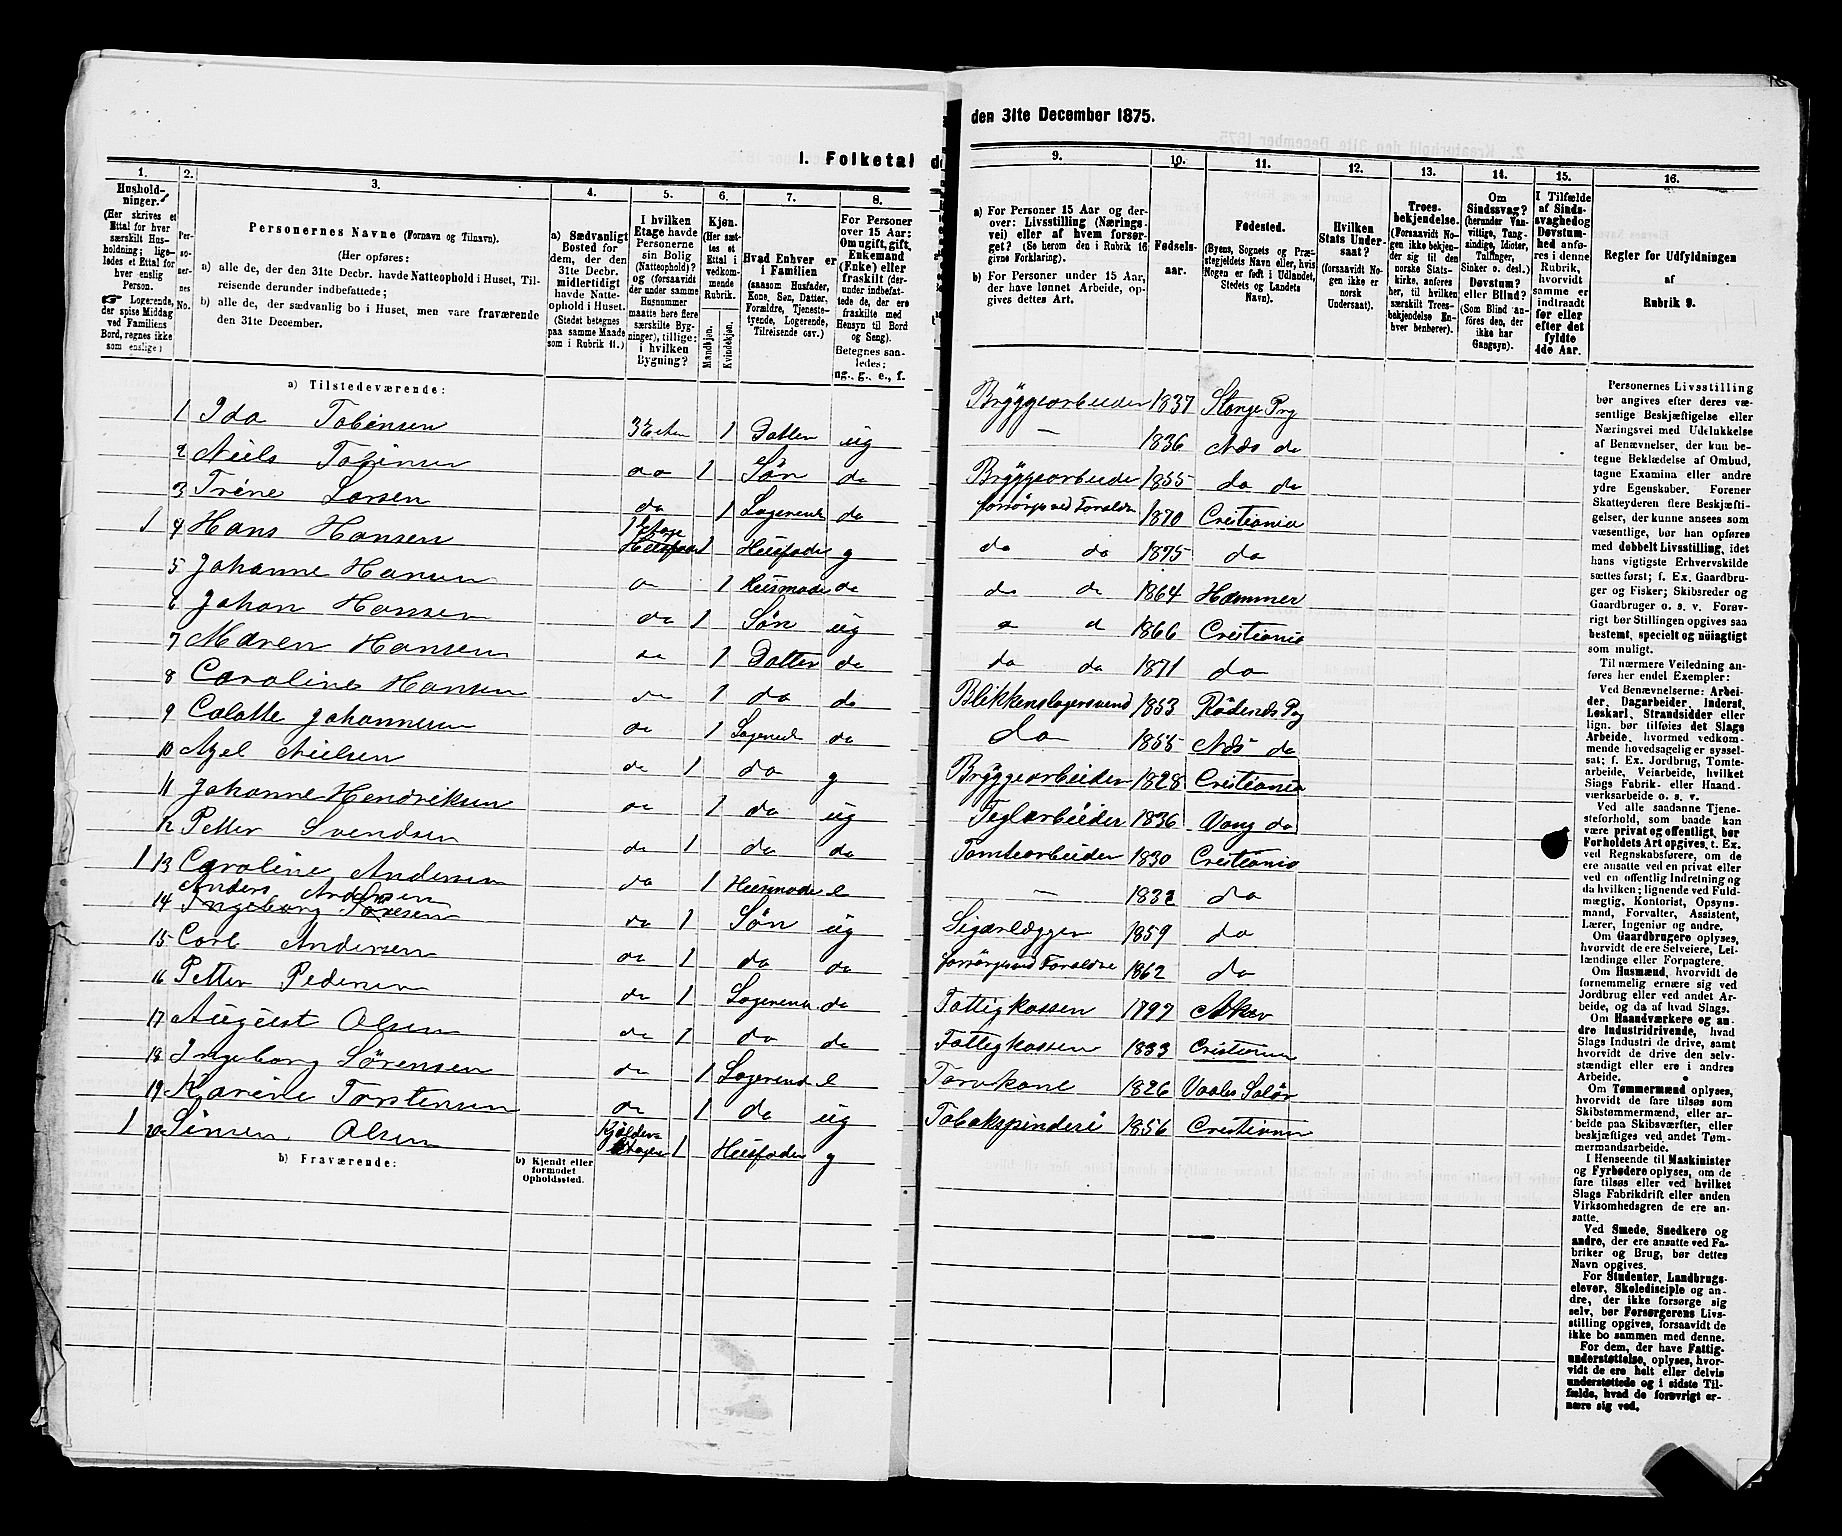 den 31te December 1875.
1. Folketal
1.
Hushold-
ninger.
(Her skrives et
Ettal for hver
særskilt Hus-
holdning; lige-
ledes et Ettal for
hver enslig
Person.
☞ Logerende,
der spise Middag
ved Familiens
Bord, regnes ikke
som enslige)
2.
Per-
so-
ner-
nes
No.
3.
Personernes Navne (Fornavn og Tilnavn).
(Her opføres:
a) alle de, der den 31te Decbr. havde Natteophold i Huset, Til-
reisende derunder indbefattede;
b) alle de, der sædvanlig bo i Huset, men vare fraværende
den 31te December.
4.
a) Sædvanligt
Bosted for
dem, der den
31te Decbr.
midlertidigt
havde Natte-
ophold i Huset.
(Stedet betegnes
paa samme Maade
som i Rubrik 11.)
5.
I hvilken
Etage havde
Personerne
sin Bolig
(Natteophold)?
og (forsaavidt
der under samme
Husnummer
maatte høre flere
særskilte Byg-
ninger), tillige:
i hvilken
Bygning?
6.
Kjøn.
(Her sæt-
tes et
Ettal i
vedkom-
mende
Rubrik.
Mandkjøn.
Kvindekjøn.
7.
Hvad Enhver er
i Familien
(saasom Husfader,
Kone, Søn, Datter,
Forældre, Tjeneste-
tyende, Logerende,
Tilreisende osv.)
8.
For Personer
over 15 Aar:
Om ugift, gift,
Enkemand
(Enke) eller
fraskilt (der-
under indbefat-
tede de, der ere
fraskilte med
Hensyn til Bord
og Seng).
Betegnes saa-
ledes:
ug., g., e., f.
9.
a) For Personer 15 Aar og der-
over: Livsstilling (Nærings-
vei) eller af hvem forsør-
get? (Se herom den i Rubrik 16
givne Forklaring).
b) For Personer under 15 Aar,
der have lønnet Arbeide, op-
gives dettes Art.
10.
Fødsels-
aar.
11.
Fødested.
(Byens, Sognets og Præ-
stegjeldets Navn eller, hvis
Nogen er født i Udlandet,
Stedets og Landets
Navn).
12.
Hvilken
Stats Under-
saat?
(forsaavidt No-
gen ikke er
norsk
Undersaat).
13.
Troes-
bekjendelse.
(Forsaavidt No-
gen ikke bekjen-
der sig til den
norske Stats-
kirke, anføres
her, til hvilken
særskilt Troes-
bekjendelse En-
hver henhører).
14.
Om
Sindssvag?
(herunder Van-
vittige, Tung-
sindige, Idioter,
Tullinger,
Sinker o. desl.)
Døvstum?
eller Blind?
(Som Blind an-
føres den, der
ikke har
Gangsyn).
15.
I Tilfælde
af Sinds-
svaghed og
Døvstum-
hed anfø-
res i denne
Rubrik,
hvorvidt
samme er
indtraadt
før eller
efter det
fyldte
4de Aar.
16.
Regler for Udfyldningen
af
Rubrik 9.
a) Tilstedeværende:
1 Ida Tobiensen 3 Etan 1 Datter ug Bryggearbeider 1837 Stange Prg
2 Niels Tobiensen do 1 Søn do — 1836 Næs do
3 Trine Larsen do 1 Logerende do Bryggearbeider 1855 do do
1 4 Hans Hansen 1 Etage 1 Huusfader g forsørges ved Foraldre 1870 Cristiania
5 Johanne Hansen do 1 Huusmoder do do do 1875 do
6 Johan Hansen do 1 Søn ug do do 1864 Hammer
7 Maren Hansen do 1 Datter do do 1866 Cristiania
8 Caroline Hansen do 1 do do do do 1871 do
9 Calotte Johannesen do 1 Logerende do Blikkenslagersvend 1853 Rødenæs Prg
10 Axel Nielsen do 1 do g do 1855 Næs do
11 Johanne Hendriksen do 1 do ug Bryggearbeider 1828 Cristiania
12 Petter Svendsen do 1 do do Teglarbeider 1836 Vang do
1 13 Caroline Andersen do 1 Huusmoder e Tomtearbeider 1830 Cristiania
Anders Andersen
14 Ingeborg do 1 Søn ug — 1832 do
15 Carl Andersen do 1 do do Sigarlægger 1859 do
16 Petter Pedersen do 1 Logerende do forsørges ved Foraldre 1862 do
17 August Olsen do 1 do do Fattigkassen 1797 Aker
18 Ingeborg Sørensen do 1 Logerend e Fattigkassen 1833 Cristiania
19 Karine Torstensen do 1 do ug Torvkone 1826 Vaaler Solør
1 20 Simen Olsen Kjelder Etagen 1 Huusfader g Tobakspinderi 1856 Cristiania
b) Fraværende:
b) Kjendt eller
formodet
Opholdssted.
Personernes Livsstilling
bør angives efter deres væ-
sentlige Beskjæftigelse eller
Næringsvei med Udelukkelse
af Benævnelser, der kun be-
tegne Beklædelse af Ombud,
tagne Examina eller andre
ydre Egenskaber. Forener
Skatteyderen flere Beskjæfti-
gelser, der kunne ansees som
væsentlige, bør han opføres
med dobbelt Livsstilling, idet
hans vigtigste Erhvervskilde
sættes først; f. Ex. Gaardbru-
ger og Fisker; Skibsreder og
Gaardbruger o. s. v. Forøv-
rigt bør Stillingen opgives saa
bestemt, specielt og nøiagtigt
som muligt.
Til nærmere Veiledning an-
føres her endel Exempler:
Ved Benævnelserne: Arbei-
der, Dagarbeider, Inderst,
Løskarl, Strandsidder eller
lign. bør tilføies det Slags
Arbeide, hvormed vedkom-
mende hovedsagelig er syssel-
sat; f. Ex. Jordbrug, Tomte-
arbeide, Veiarbeide, hvilket
Slags Fabrik- eller Haand-
værksarbeide o. s. v.
Ved alle saadanne Tjene-
steforhold, som baade kan
være privat og offentligt, bør
Forholdets Art opgives, t. Ex.
ved Regnskabsførere, om de
ere ansatte ved en privat eller
ved en offentlig Indretning og
da hvilken; lignende ved Fuld-
mægtig, Kontorist, Opsyns-
mand, Forvalter, Assistent,
Lærer, Ingeniør og andre.
Om Gaardbrugere oplyses,
hvorvidt de ere Selveiere, Lei-
lændinge eller Forpagtere.
Om Husmænd, hvorvidt de
fornemmelig ernære sig ved
Jordbrug eller ved andet Ar-
beide, og da af hvad Slags.
Om Haandværkere og an-
dre Industridrivende, hvad
Slags Industri de drive, samt
hvorvidt de drive den selv-
stændigt eller ere i andres
Arbeide.
Om Tømmermænd oplyses,
hvorvidt de fare tilsøs som
Skibstømmermænd, eller ar-
beide paa Skibsværfter, eller
beskjæftiges ved andet Tøm-
mermandsarbeide.
I Henseende til Maskinister
og Fyrbødere oplyses, om de
fare tilsøs eller ved hvilket
Slags Fabrikdrift eller anden
Virksomhedsgren de ere an-
satte.
Ved Smede, Snedkere og
andre, der ere ansatte ved Fa-
briker og Brug, bør dettes
Navn opgives.
For Studenter, Landbrugs-
elever, Skoledisciple og an-
dre, der ikke forsørge sig
selv, bør Forsørgerens Livs-
stilling opgives, forsaavidt de
ikke bo sammen med denne.
For dem, der have Fattig-
understøttelse, oplyses, hvor-
vidt de ere helt eller delvis
understøttede og i sidste Til-
fælde, hvad de forøvrigt er-
nære sig ved.